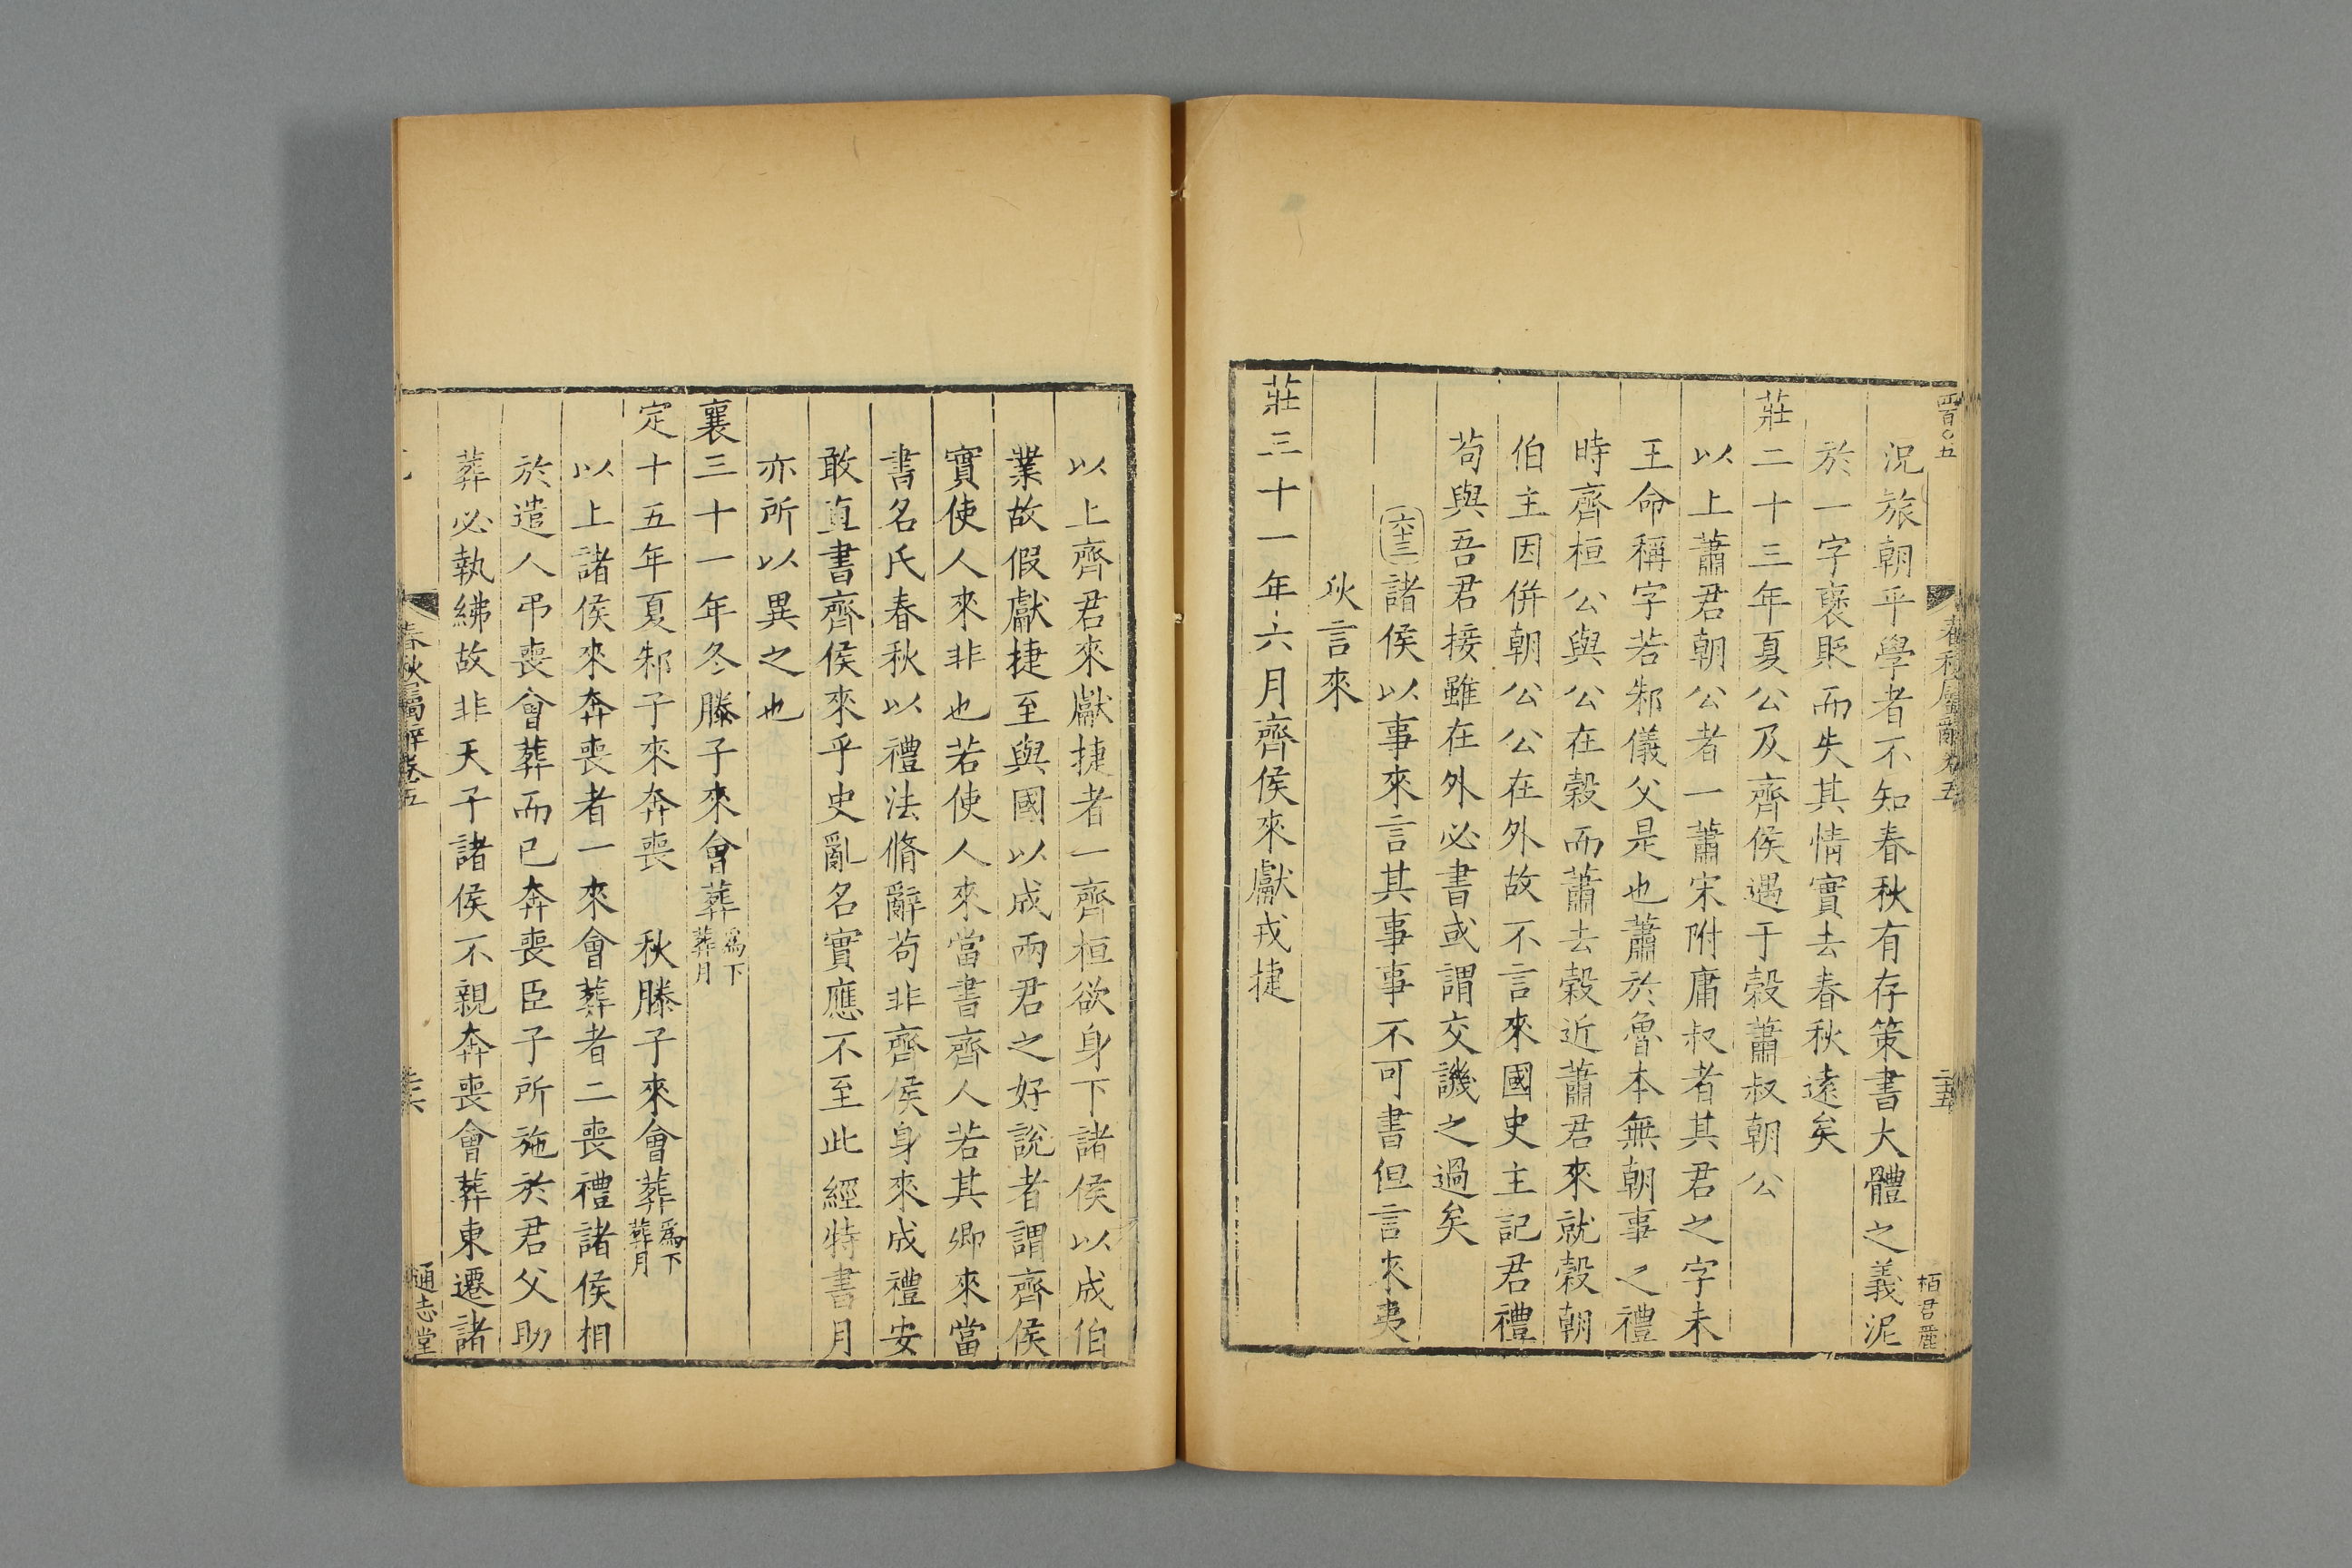 四百〇五
春秋屬辭卷五
二五
栢君麗
況旅朝乎學者不知春秋有存策書大體之義泥
於一字襃貶而失其情實去春秋遠矣
莊二十三年夏公及齊侯遇于榖蕭叔朝公
以上蕭君朝公者一蕭宋附庸叔者其君之字未
王命稱字若邾儀父是也蕭於魯本無朝事之禮
時齊桓公與公在榖而蕭去榖近蕭君來就榖朝
伯主因併朝公公在外故不言來國史主記君禮
苟與吾君接雖在外必書或謂交譏之過矣
六十三諸侯以事來言其事事不可書但言來夷
狄言來
莊三十一年六月齊侯來獻戎捷
以上齊君來獻捷者一齊桓欲身下諸侯以成伯
業故假獻捷至與國以成兩君之好說者謂齊侯
實使人來非也若使人來當書齊人若其卿來當
書名氏春秋以禮法脩辭苟非齊侯身來成禮安
敢直書齊侯來乎史亂名實應不至此經特書月
亦所以異之也
襄三十一年冬滕子來會葬爲下葬月
定十五年夏邾子來奔喪　秋滕子來會葬爲下葬月
以上諸侯來奔喪者一來會葬者二喪禮諸侯相
於遣人弔喪會葬而已奔喪臣子所施於君父助
葬必執紼故非天子諸侯不親奔喪會葬東遷諸
春秋屬辭卷五
通志堂